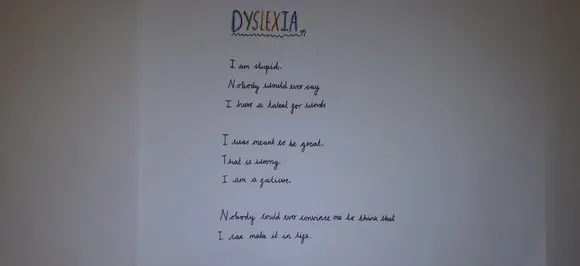 DYSLEXIA
I am stupid.
Nobody would ever say
I have a talent for words
I was meant to be great.
That is wrong
I am a failure.
Nobody could ever convince me to think that
I can make it in life.